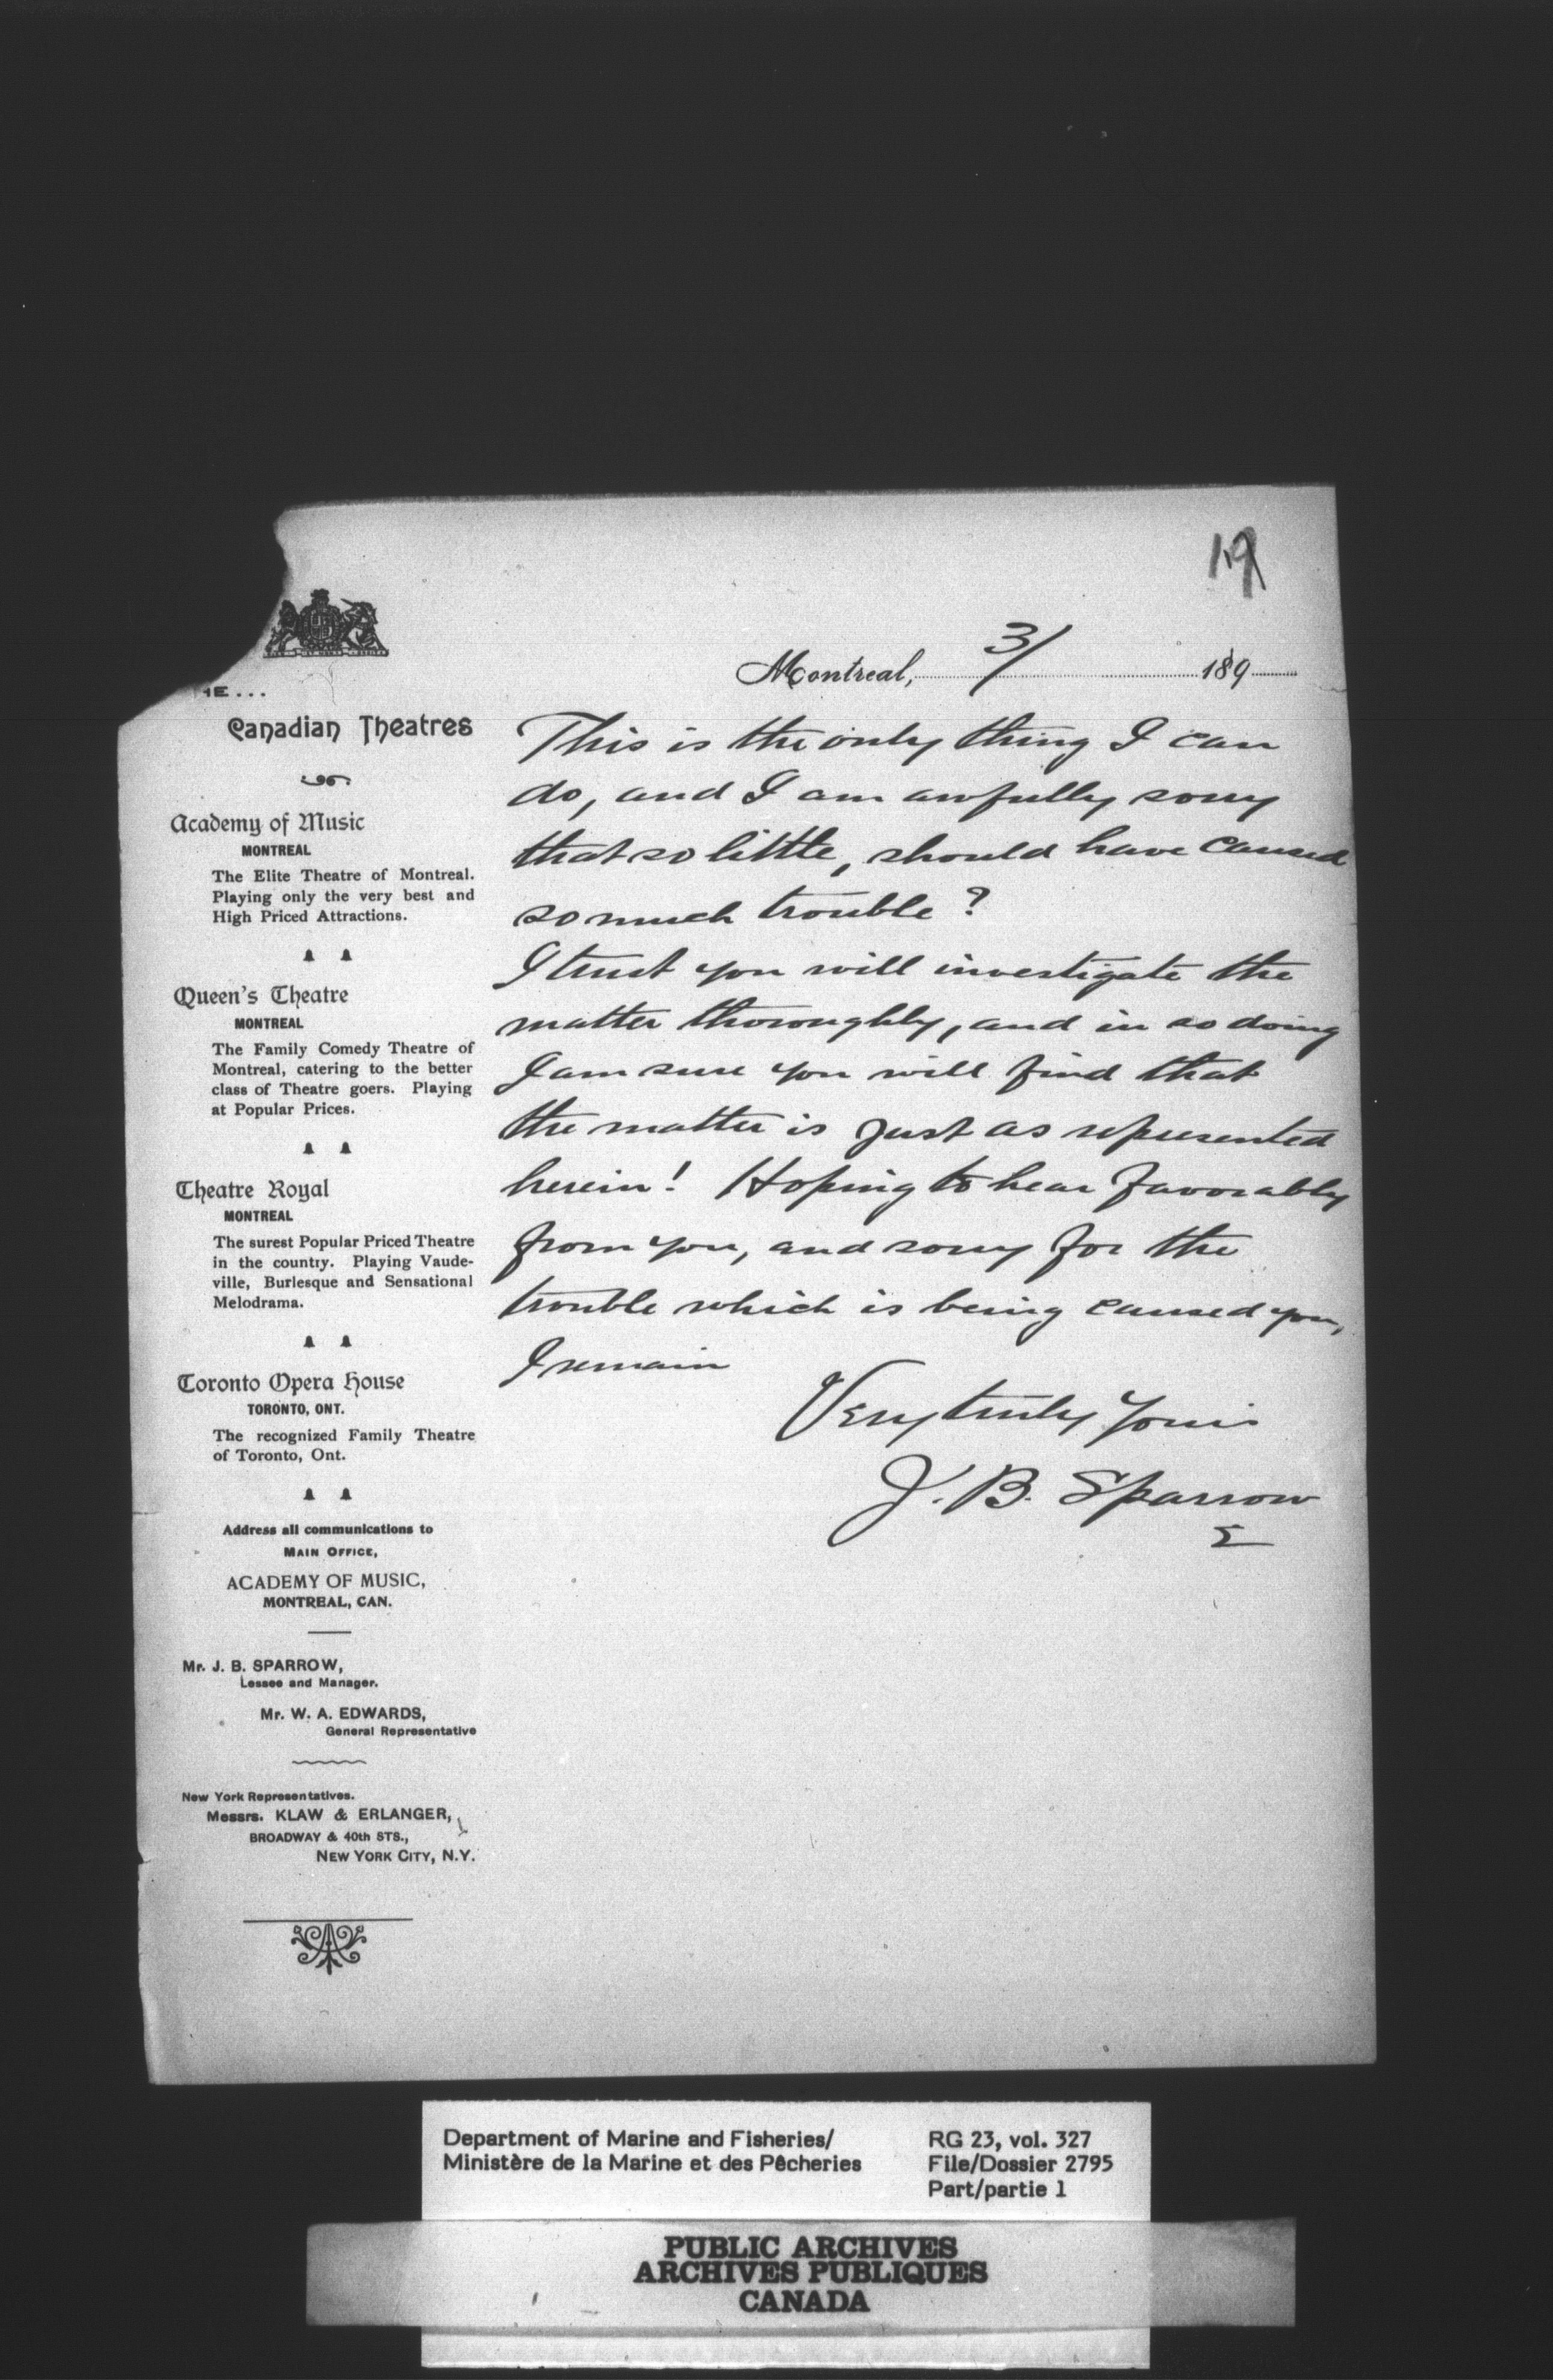 19
Montreal, 3/ 189
...
Canadian Theatres
Academy of Music
MONTREAL
The Elite Theatre of Montreal.
Playing only the very best and
High Priced Attractions.
Queen's Theatre
MONTREAL
The Family Comedy Theatre of
Montreal, catering to the better
class of Theatre goers. Playing
at Popular Prices.
Theatre Royal
MONTREAL
The surest Popular Priced Theatre
in the country. Playing Vaude-
ville, Burlesque and Sensational
Melodrama.
Toronto Opera House
TORONTO, ONT.
The recognized Family Theatre
of Toronto, Ont.
Address all communications to
MAIN OFFICE,
ACADEMY OF MUSIC,
MONTREAL, CAN.
Mr. J. B. SPARROW,
Lessee and Manager.
Mr. W. A. EDWARDS,
General Representative
New York Representatives.
Messrs. KLAW & ERLANGER,
BROADWAY & 40th STS.,
NEW YORK CITY, N.Y.
This is the only thing I can
do, and I am awfully sorry
that so little, should have caused
so much trouble?
I trust you will investigate the
matter thoroughly, and in so doing
I am sure you will find that
the matter is just as represented
herein! Hoping to hear favorably
from you, and sorry for the
trouble which is being caused you,
I remain
Very truly Yours
J. B. Sparrow
E
Department of Marine and Fisheries/
Ministère de la Marine et des Pêcheries
RG 23, vol. 327
File/Dossier 2795
Part/partie 1
PUBLIC ARCHIVES
ARCHIVES PUBLIQUES
CANADA